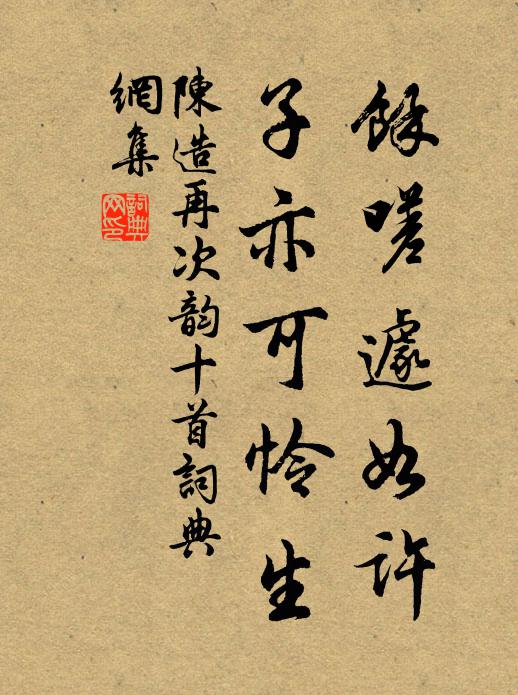 餘嗟遽如許
子亦可怜生
陳造再次韵十首詞典
網集
詞典
网印